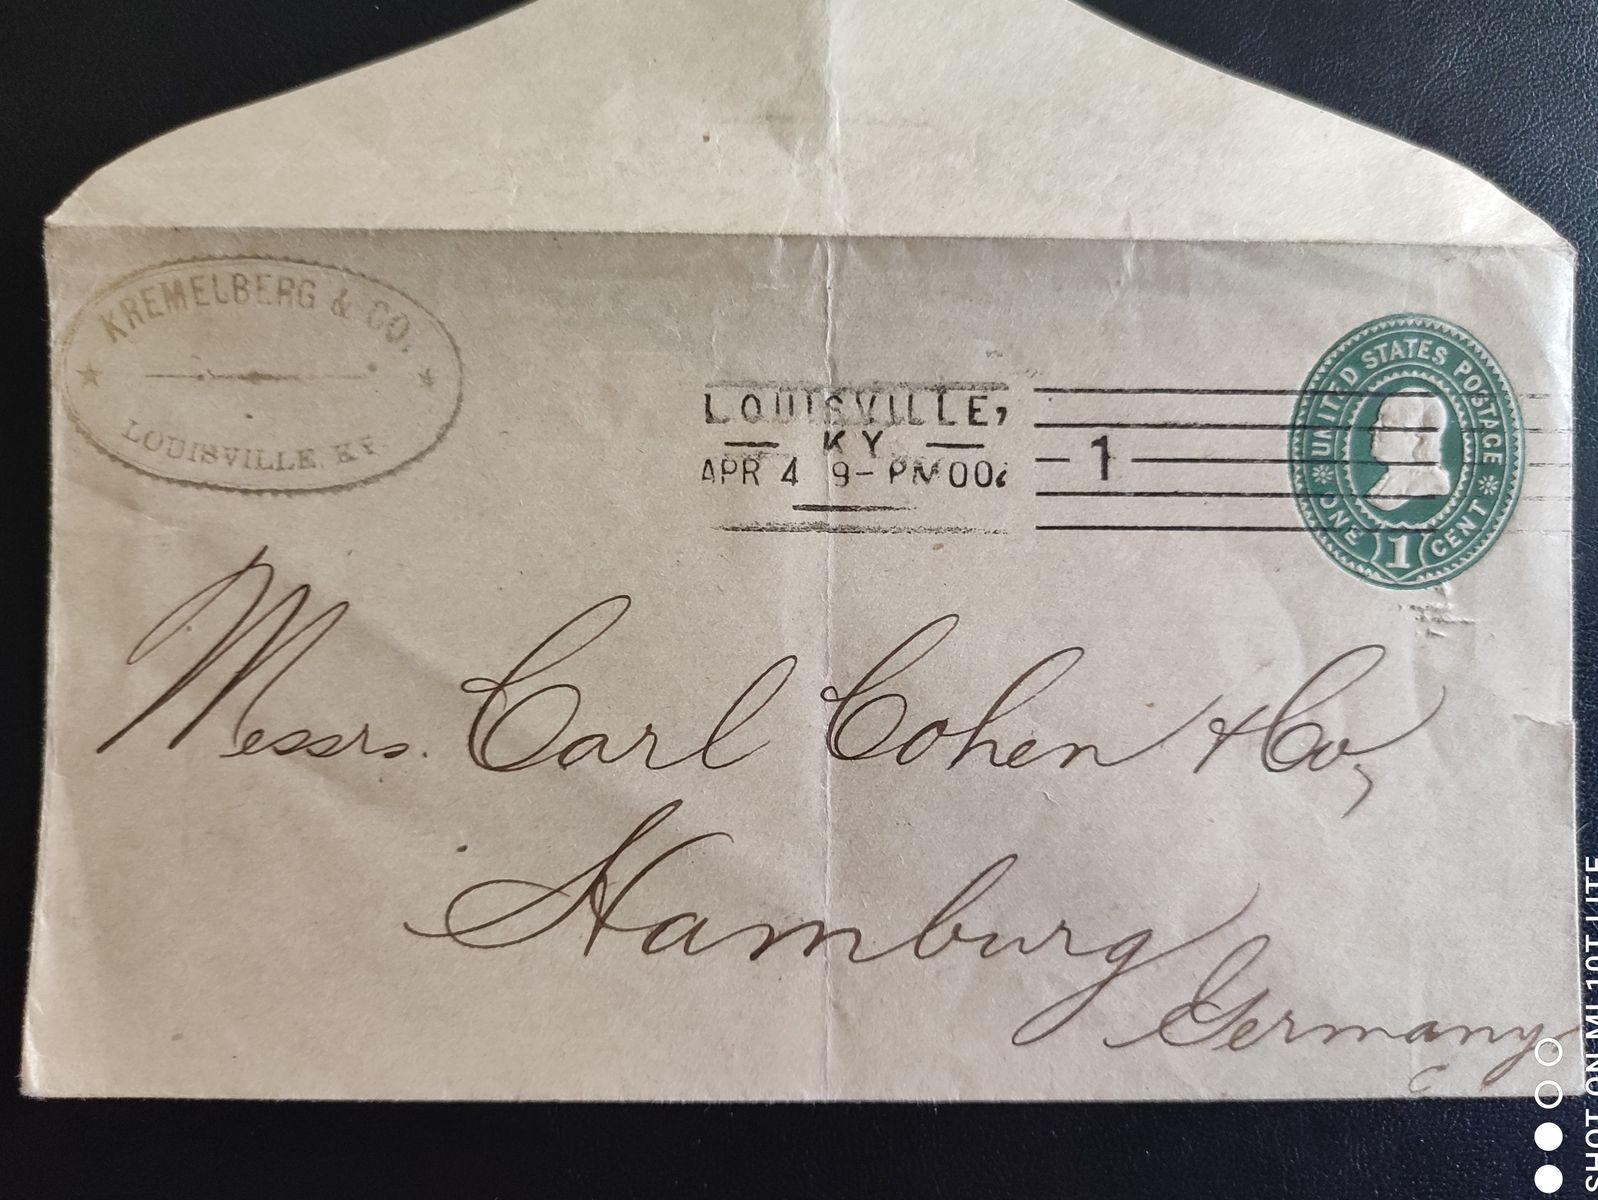 KREMELBERG & CO.
LOUISVILLE, KY.
LOUISVILLE,
KY
APR 4 9-PM 00
1
UNITED STATES POSTAGE
ONE 1 CENT
Messrs. Carl Cohen & Co,
Hamburg
Germany
SHOT ON MI 10T LITE